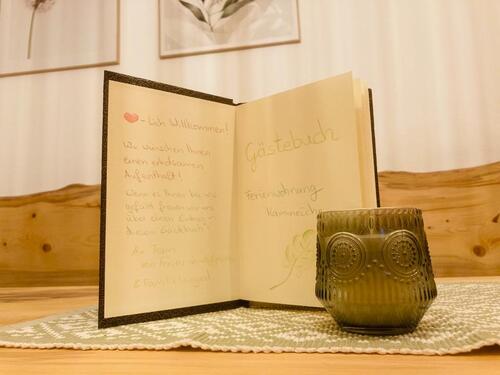 ❤-lich Willkommen!
Wir wünschen Ihnen
einen erholsamen
Aufenthalt!
Wenn es Ihnen bei uns
gefällt freuen wir uns
über einen Eintrag in
diesem Gästebuch!
Ihr Team
Gästebuch
Ferienwohnung